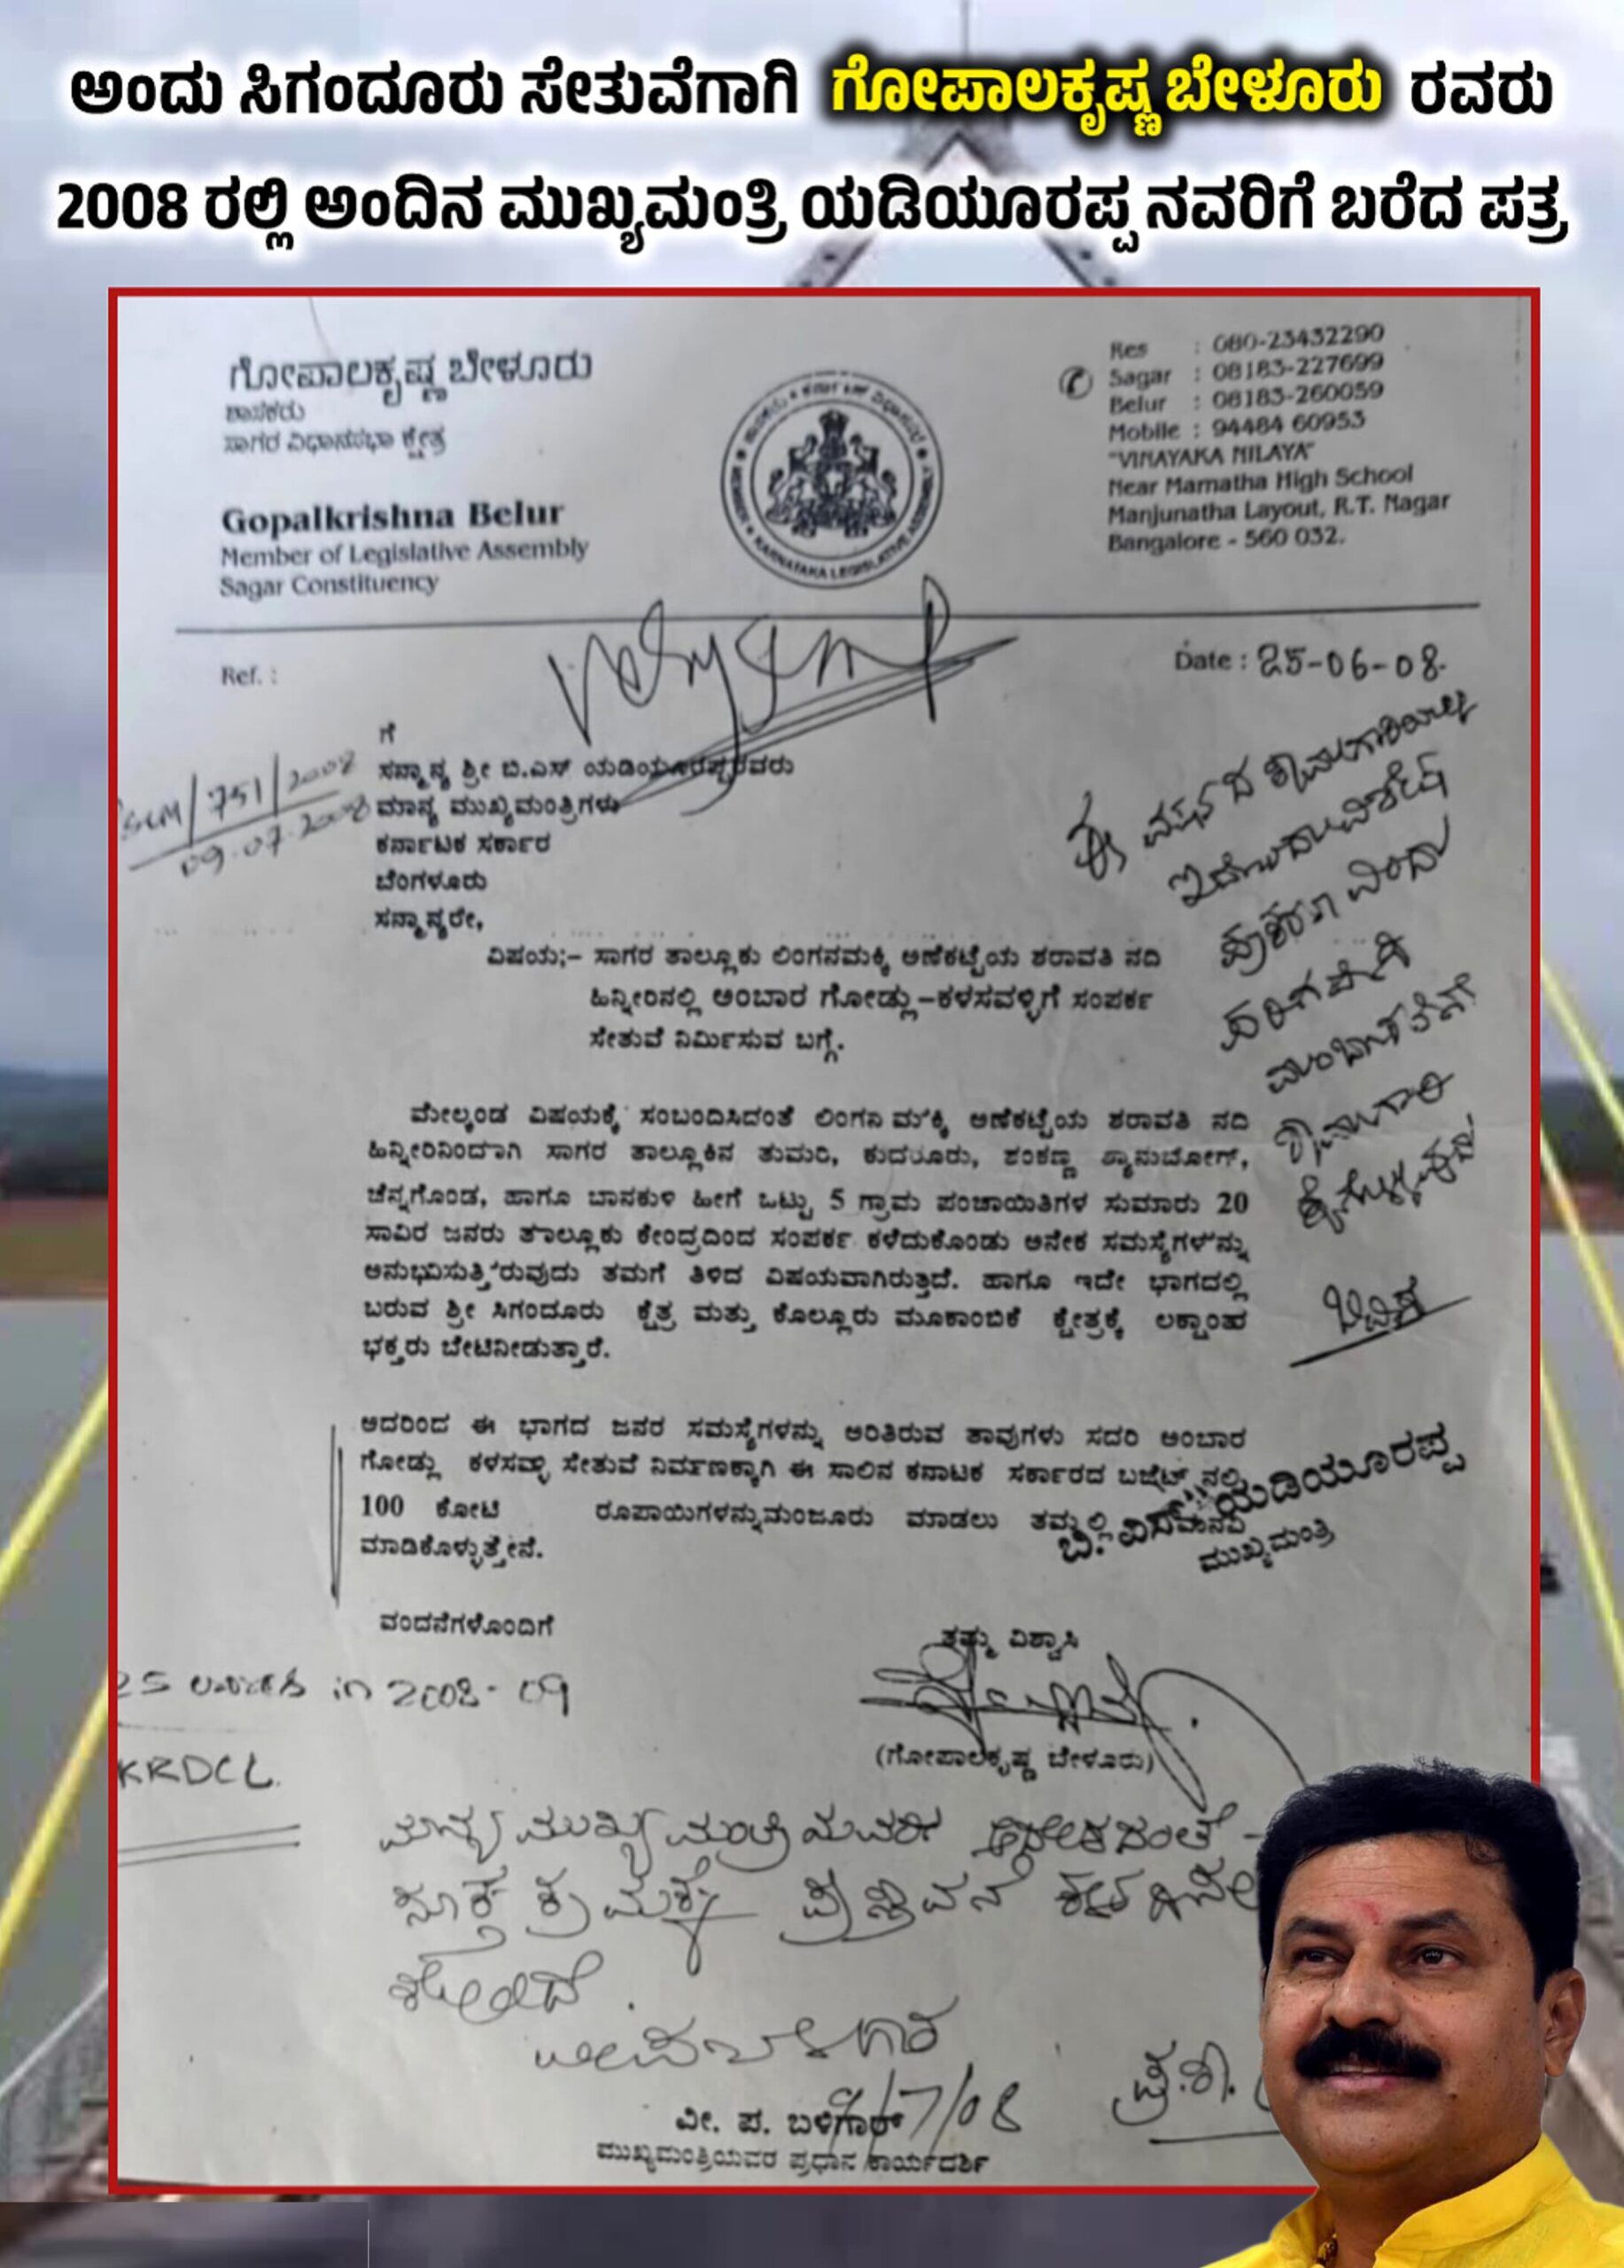 ಅಂದು ಸಿಗಂದೂರು ಸೇತುವೆಗಾಗಿ ಗೋಪಾಲಕೃಷ್ಣ ಬೇಳೂರು ರವರು
2008 ರಲ್ಲಿ ಅಂದಿನ ಮುಖ್ಯಮಂತ್ರಿ ಯಡಿಯೂರಪ್ಪನವರಿಗೆ ಬರೆದ ಪತ್ರ
ಗೋಪಾಲಕೃಷ್ಣ ಬೇಳೂರು
ಶಾಸಕರು
ಸಾಗರ ವಿಧಾನಸಭಾ ಕ್ಷೇತ್ರ
Gopalkrishna Belur
Member of Legislative Assembly
Sagar Constituency
MEMBER KARNATAKA LEGISLATIVE ASSEMBLY
Res : 080-23432290
Sagar : 08183-227699
Belur : 08183-260059
Mobile : 94484 60953
"VINAYAKA NILAYA"
Near Mamatha High School
Manjunatha Layout, R.T. Nagar
Bangalore - 560 032.
Ref. :
Date : 25-06-08
751/2008
09.07.2008
ಗೆ
ಸನ್ಮಾನ್ಯ ಶ್ರೀ ಬಿ.ಎಸ್ ಯಡಿಯೂರಪ್ಪರವರು
ಮಾನ್ಯ ಮುಖ್ಯಮಂತ್ರಿಗಳು
ಕರ್ನಾಟಕ ಸರ್ಕಾರ
ಬೆಂಗಳೂರು
ಸನ್ಮಾನ್ಯರೇ,
ವಿಷಯ:– ಸಾಗರ ತಾಲ್ಲೂಕು ಲಿಂಗನಮಕ್ಕಿ ಅಣೆಕಟ್ಟೆಯ ಶರಾವತಿ ನದಿ
ಹಿನ್ನೀರಿನಲ್ಲಿ ಅಂಬಾರ ಗೋಡ್ಲು–ಕಳಸವಳ್ಳಿಗೆ ಸಂಪರ್ಕ
ಸೇತುವೆ ನಿರ್ಮಿಸುವ ಬಗ್ಗೆ.
ಮೇಲ್ಕಂಡ ವಿಷಯಕ್ಕೆ ಸಂಬಂದಿಸಿದಂತೆ ಲಿಂಗನಮಕ್ಕಿ ಅಣೆಕಟ್ಟೆಯ ಶರಾವತಿ ನದಿ
ಹಿನ್ನೀರಿನಿಂದಾಗಿ ಸಾಗರ ತಾಲ್ಲೂಕಿನ ತುಮರಿ, ಕುದರೂರು, ಶಂಕಣ್ಣ ಶ್ಯಾನುಬೋಗ್,
ಚೆನ್ನಗೊಂಡ, ಹಾಗೂ ಬಾನಕುಳಿ ಹೀಗೆ ಒಟ್ಟು 5 ಗ್ರಾಮ ಪಂಚಾಯಿತಿಗಳ ಸುಮಾರು 20
ಸಾವಿರ ಜನರು ತಾಲ್ಲೂಕು ಕೇಂದ್ರದಿಂದ ಸಂಪರ್ಕ ಕಳೆದುಕೊಂಡು ಅನೇಕ ಸಮಸ್ಯೆಗಳನ್ನು
ಅನುಭವಿಸುತ್ತಿರುವುದು ತಮಗೆ ತಿಳಿದ ವಿಷಯವಾಗಿರುತ್ತದೆ. ಹಾಗೂ ಇದೇ ಭಾಗದಲ್ಲಿ
ಬರುವ ಶ್ರೀ ಸಿಗಂದೂರು ಕ್ಷೆತ್ರ ಮತ್ತು ಕೊಲ್ಲೂರು ಮೂಕಾಂಬಿಕೆ ಕ್ಷೇತ್ರಕ್ಕೆ ಲಕ್ಷಾಂತರ
ಭಕ್ತರು ಬೇಟಿನೀಡುತ್ತಾರೆ.
ಅದರಿಂದ ಈ ಭಾಗದ ಜನರ ಸಮಸ್ಯೆಗಳನ್ನು ಅರಿತಿರುವ ತಾವುಗಳು ಸದರಿ ಅಂಬಾರ
ಗೋಡ್ಲು ಕಳಸವಳ್ಳಿ ಸೇತುವೆ ನಿರ್ಮಣಕ್ಕಾಗಿ ಈ ಸಾಲಿನ ಕನಾಟಕ ಸರ್ಕಾರದ ಬಜೆಟ್ ನಲ್ಲಿ
100 ಕೋಟಿ ರೂಪಾಯಿಗಳನ್ನುಮಂಜೂರು ಮಾಡಲು ತಮ್ಮಲ್ಲಿ ಮನವಿ
ಮಾಡಿಕೊಳ್ಳುತ್ತೇನೆ.
ಬಿ. ಎಸ್. ಯಡಿಯೂರಪ್ಪ
ಮುಖ್ಯಮಂತ್ರಿ
ವಂದನೆಗಳೊಂದಿಗೆ
ತಮ್ಮ ವಿಶ್ವಾಸಿ
in 2008-09
(ಗೋಪಾಲಕೃಷ್ಣ ಬೇಳೂರು)
KRDCL
ಮಾನ್ಯ ಮುಖ್ಯಮಂತ್ರಿಯವರ ಆದೇಶದಂತೆ
ಸೂಕ್ತ ಕ್ರಮಕ್ಕೆ
9/7/08
ವೀ. ಪ. ಬಳಿಗಾರ್
ಮುಖ್ಯಮಂತ್ರಿಯವರ ಪ್ರಧಾನ ಕಾರ್ಯದರ್ಶಿ